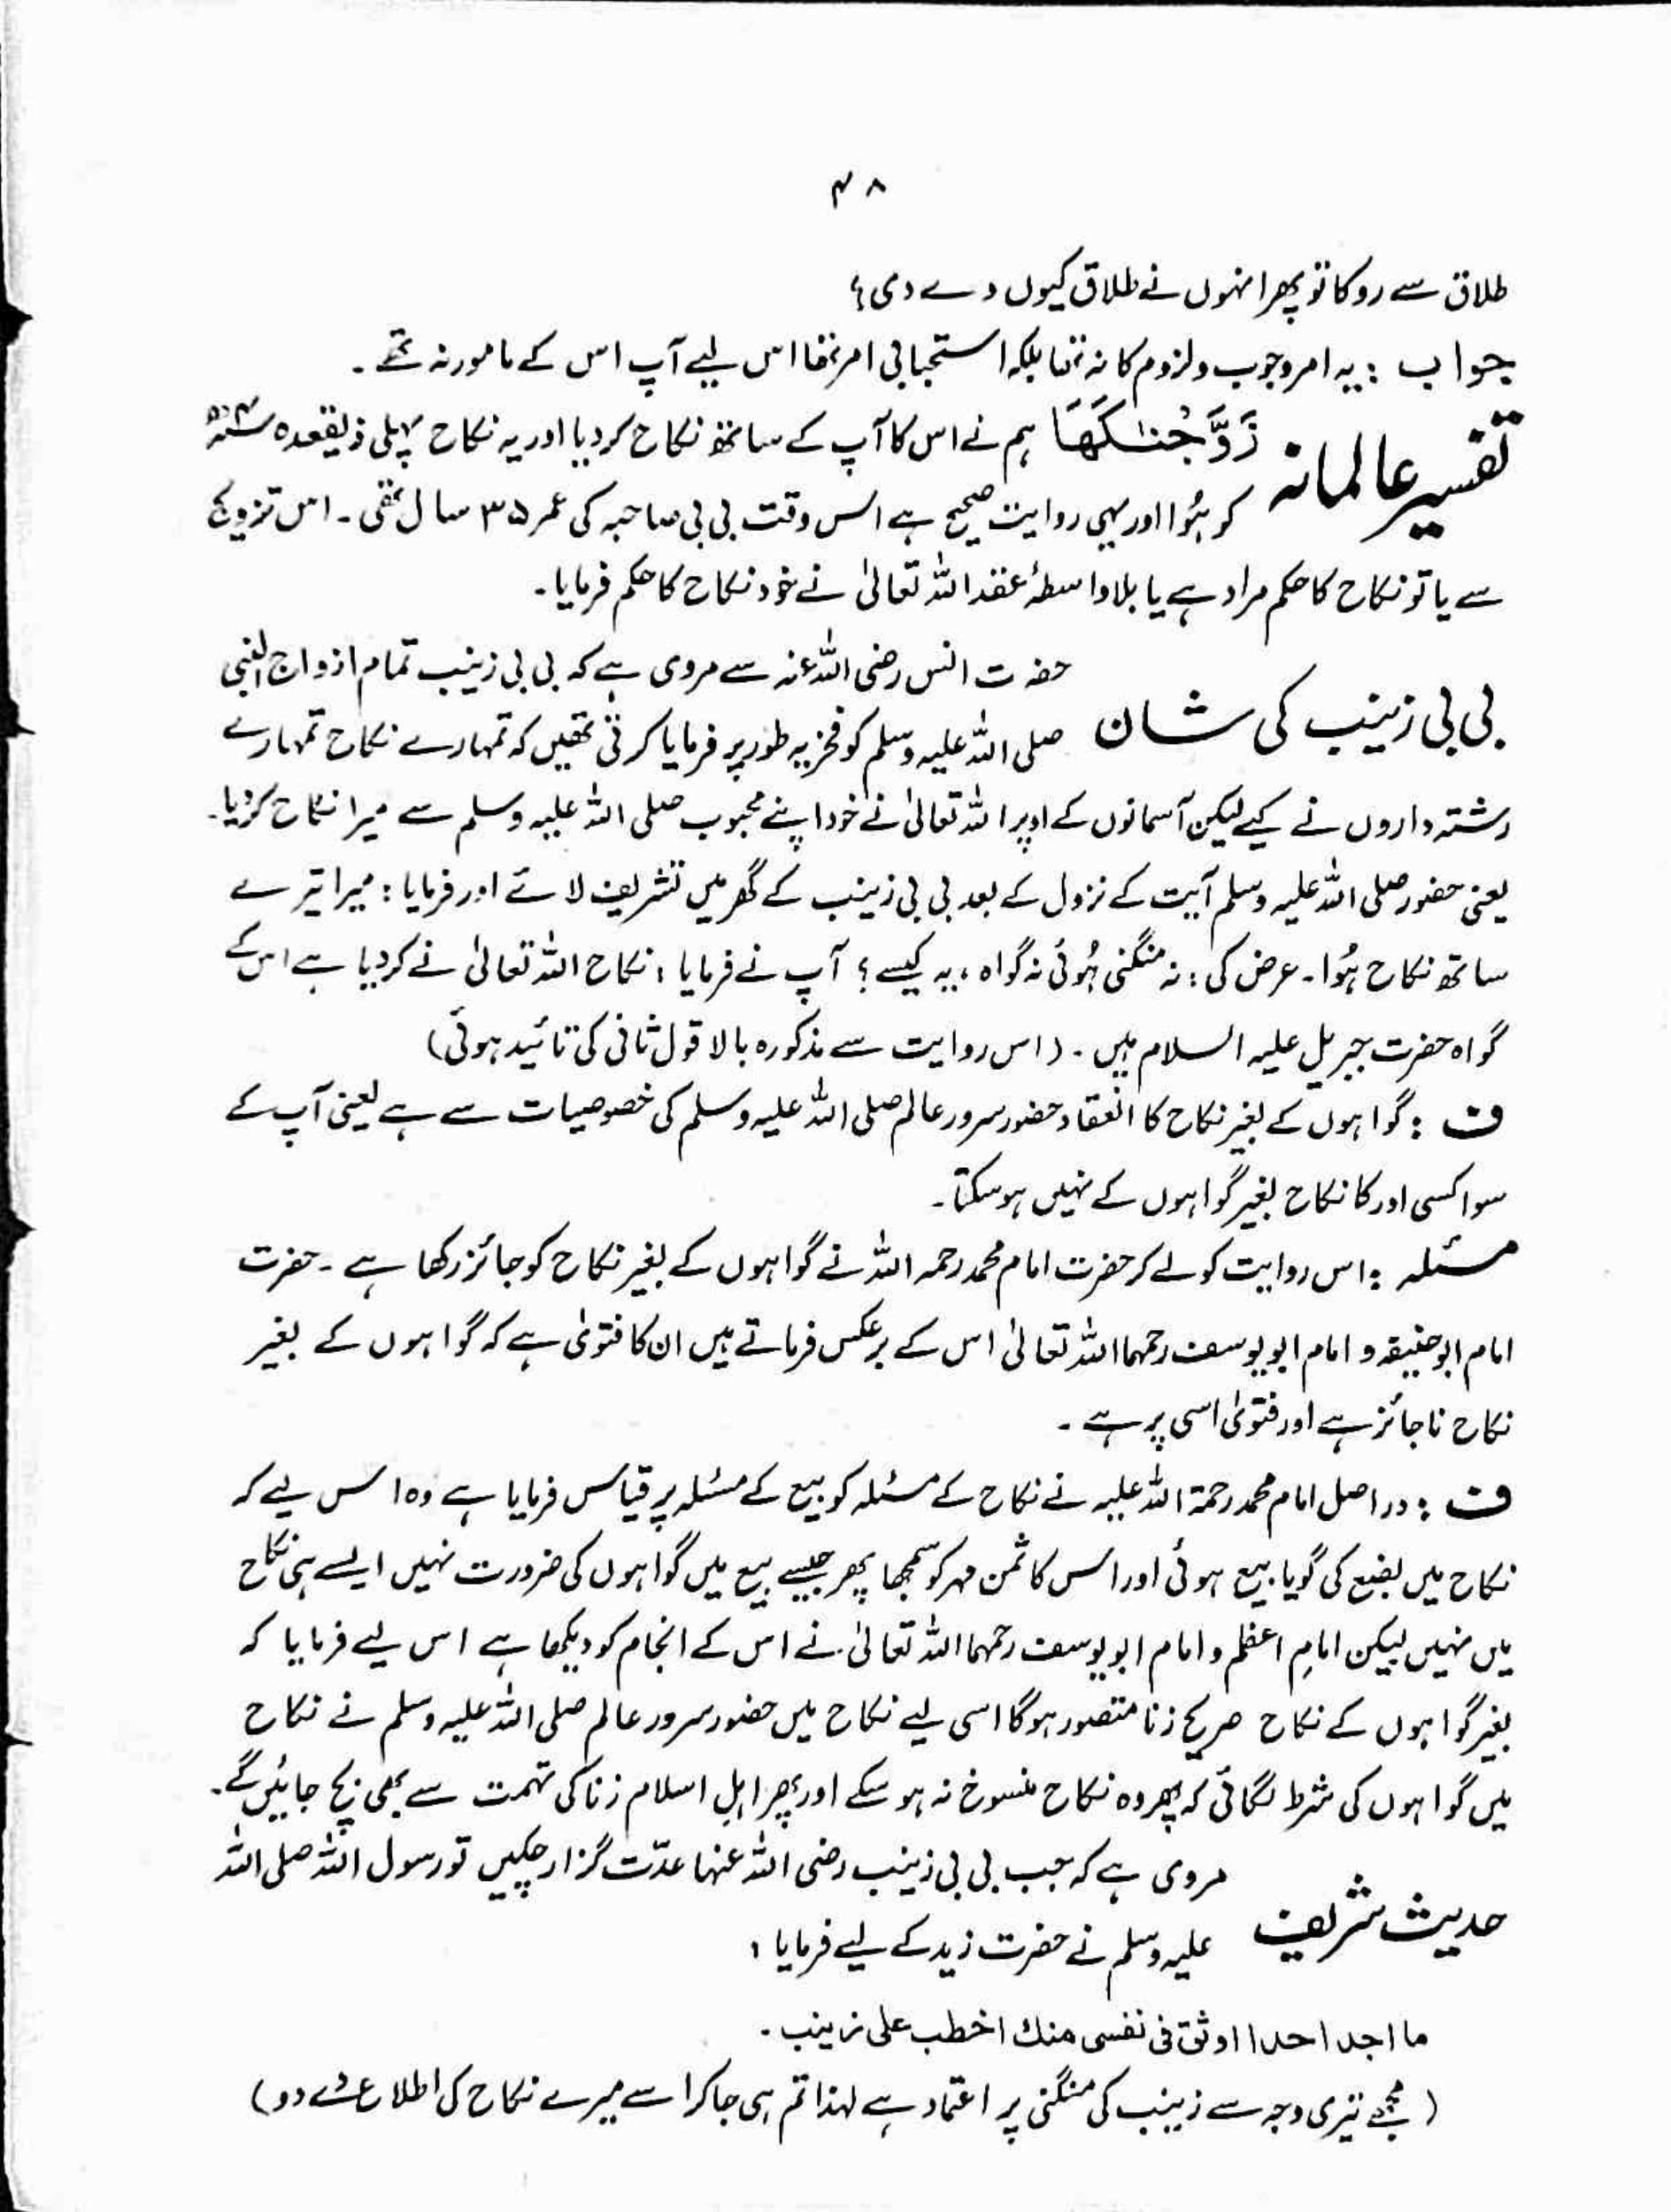 ۴۸
طلاق سے روکا تو پھر انہوں نے طلاق کیوں دے دی؟
جواب : یہ امر وجوب ولزوم کا نہ تھا بلکہ استحبابی امر تھا اس لیے آپ اس کے مامور نہ تھے۔
تفسیر عالمانہ زَوَّجْنٰكَهَا ہم نے اس کا آپ کے ساتھ نکاح کر دیا اور یہ نکاح پہلی ذیقعدہ
کو ہُوا اور یہی روایت صحیح ہے اس وقت بی بی صاحبہ کی عمر ۳۵ سال تھی۔ اس تزویج
سے یا تو نکاح کا حکم مراد ہے یا بلاواسطۂ عقد اللہ تعالیٰ نے خود نکاح کا حکم فرمایا۔
بی بی زینب کی شان حضرت انس رضی اللہ عنہ سے مروی ہے کہ بی بی زینب تمام ازواج النبی
صلی اللہ علیہ وسلم کو فخریہ طور پر فرمایا کرتی تھیں کہ تمہارے نکاح تمہارے
رشتہ داروں نے کیے لیکن آسمانوں کے اوپر اللہ تعالیٰ نے خود اپنے محبوب صلی اللہ علیہ وسلم سے میرا نکاح کر دیا۔
یعنی حضور صلی اللہ علیہ وسلم آیت کے نزول کے بعد بی بی زینب کے گھر میں تشریف لائے اور فرمایا : میرا تیرے
ساتھ نکاح ہُوا۔ عرض کی : نہ منگنی ہُوئی نہ گواہ ، یہ کیسے ؟ آپ نے فرمایا : نکاح اللہ تعالیٰ نے کر دیا ہے اس کے
گواہ حضرت جبریل علیہ السلام ہیں۔ (اس روایت سے مذکورہ بالا قول ثانی کی تائید ہوئی)
ف : گواہوں کے بغیر نکاح کا انعقاد حضور سرور عالم صلی اللہ علیہ وسلم کی خصوصیات سے ہے یعنی آپ کے
سوا کسی اور کا نکاح بغیر گواہوں کے نہیں ہو سکتا۔
مسئلہ : اس روایت کو لے کر حضرت امام محمد رحمہ اللہ نے گواہوں کے بغیر نکاح کو جائز رکھا ہے۔ حضرت
امام ابوحنیفہ و امام ابو یوسف رحمہما اللہ تعالیٰ اس کے برعکس فرماتے ہیں ان کا فتویٰ ہے کہ گواہوں کے بغیر
نکاح ناجائز ہے اور فتویٰ اسی پر ہے۔
ف : دراصل امام محمد رحمۃ اللہ علیہ نے نکاح کے مسئلہ کو بیع کے مسئلہ پر قیاس فرمایا ہے وہ اس لیے کہ
نکاح میں بضع کی گویا بیع ہوئی اور اس کا ثمن مہر کو سمجھا پھر جیسے بیع میں گواہوں کی ضرورت نہیں ایسے ہی نکاح
میں نہیں لیکن امامِ اعظم و امام ابو یوسف رحمہما اللہ تعالیٰ نے اس کے انجام کو دیکھا ہے اس لیے فرمایا کہ
بغیر گواہوں کے نکاح صریح زنا متصور ہوگا اسی لیے نکاح میں حضور سرور عالم صلی اللہ علیہ وسلم نے نکاح
میں گواہوں کی شرط لگائی کہ پھر وہ نکاح منسوخ نہ ہو سکے اور پھر اہلِ اسلام زنا کی تہمت سے بھی بچ جائیں گے۔
حدیث شریف مروی ہے کہ جب بی بی زینب رضی اللہ عنہا عدّت گزار چکیں تو رسول اللہ صلی اللہ
علیہ وسلم نے حضرت زید کے لیے فرمایا :
ما اجد احدا اوثق فی نفسی منك اخطب علی زینب۔
( مجھے تیری وجہ سے زینب کی منگنی پر اعتماد ہے لہذا تم ہی جا کر اسے میرے نکاح کی اطلاع دے دو)